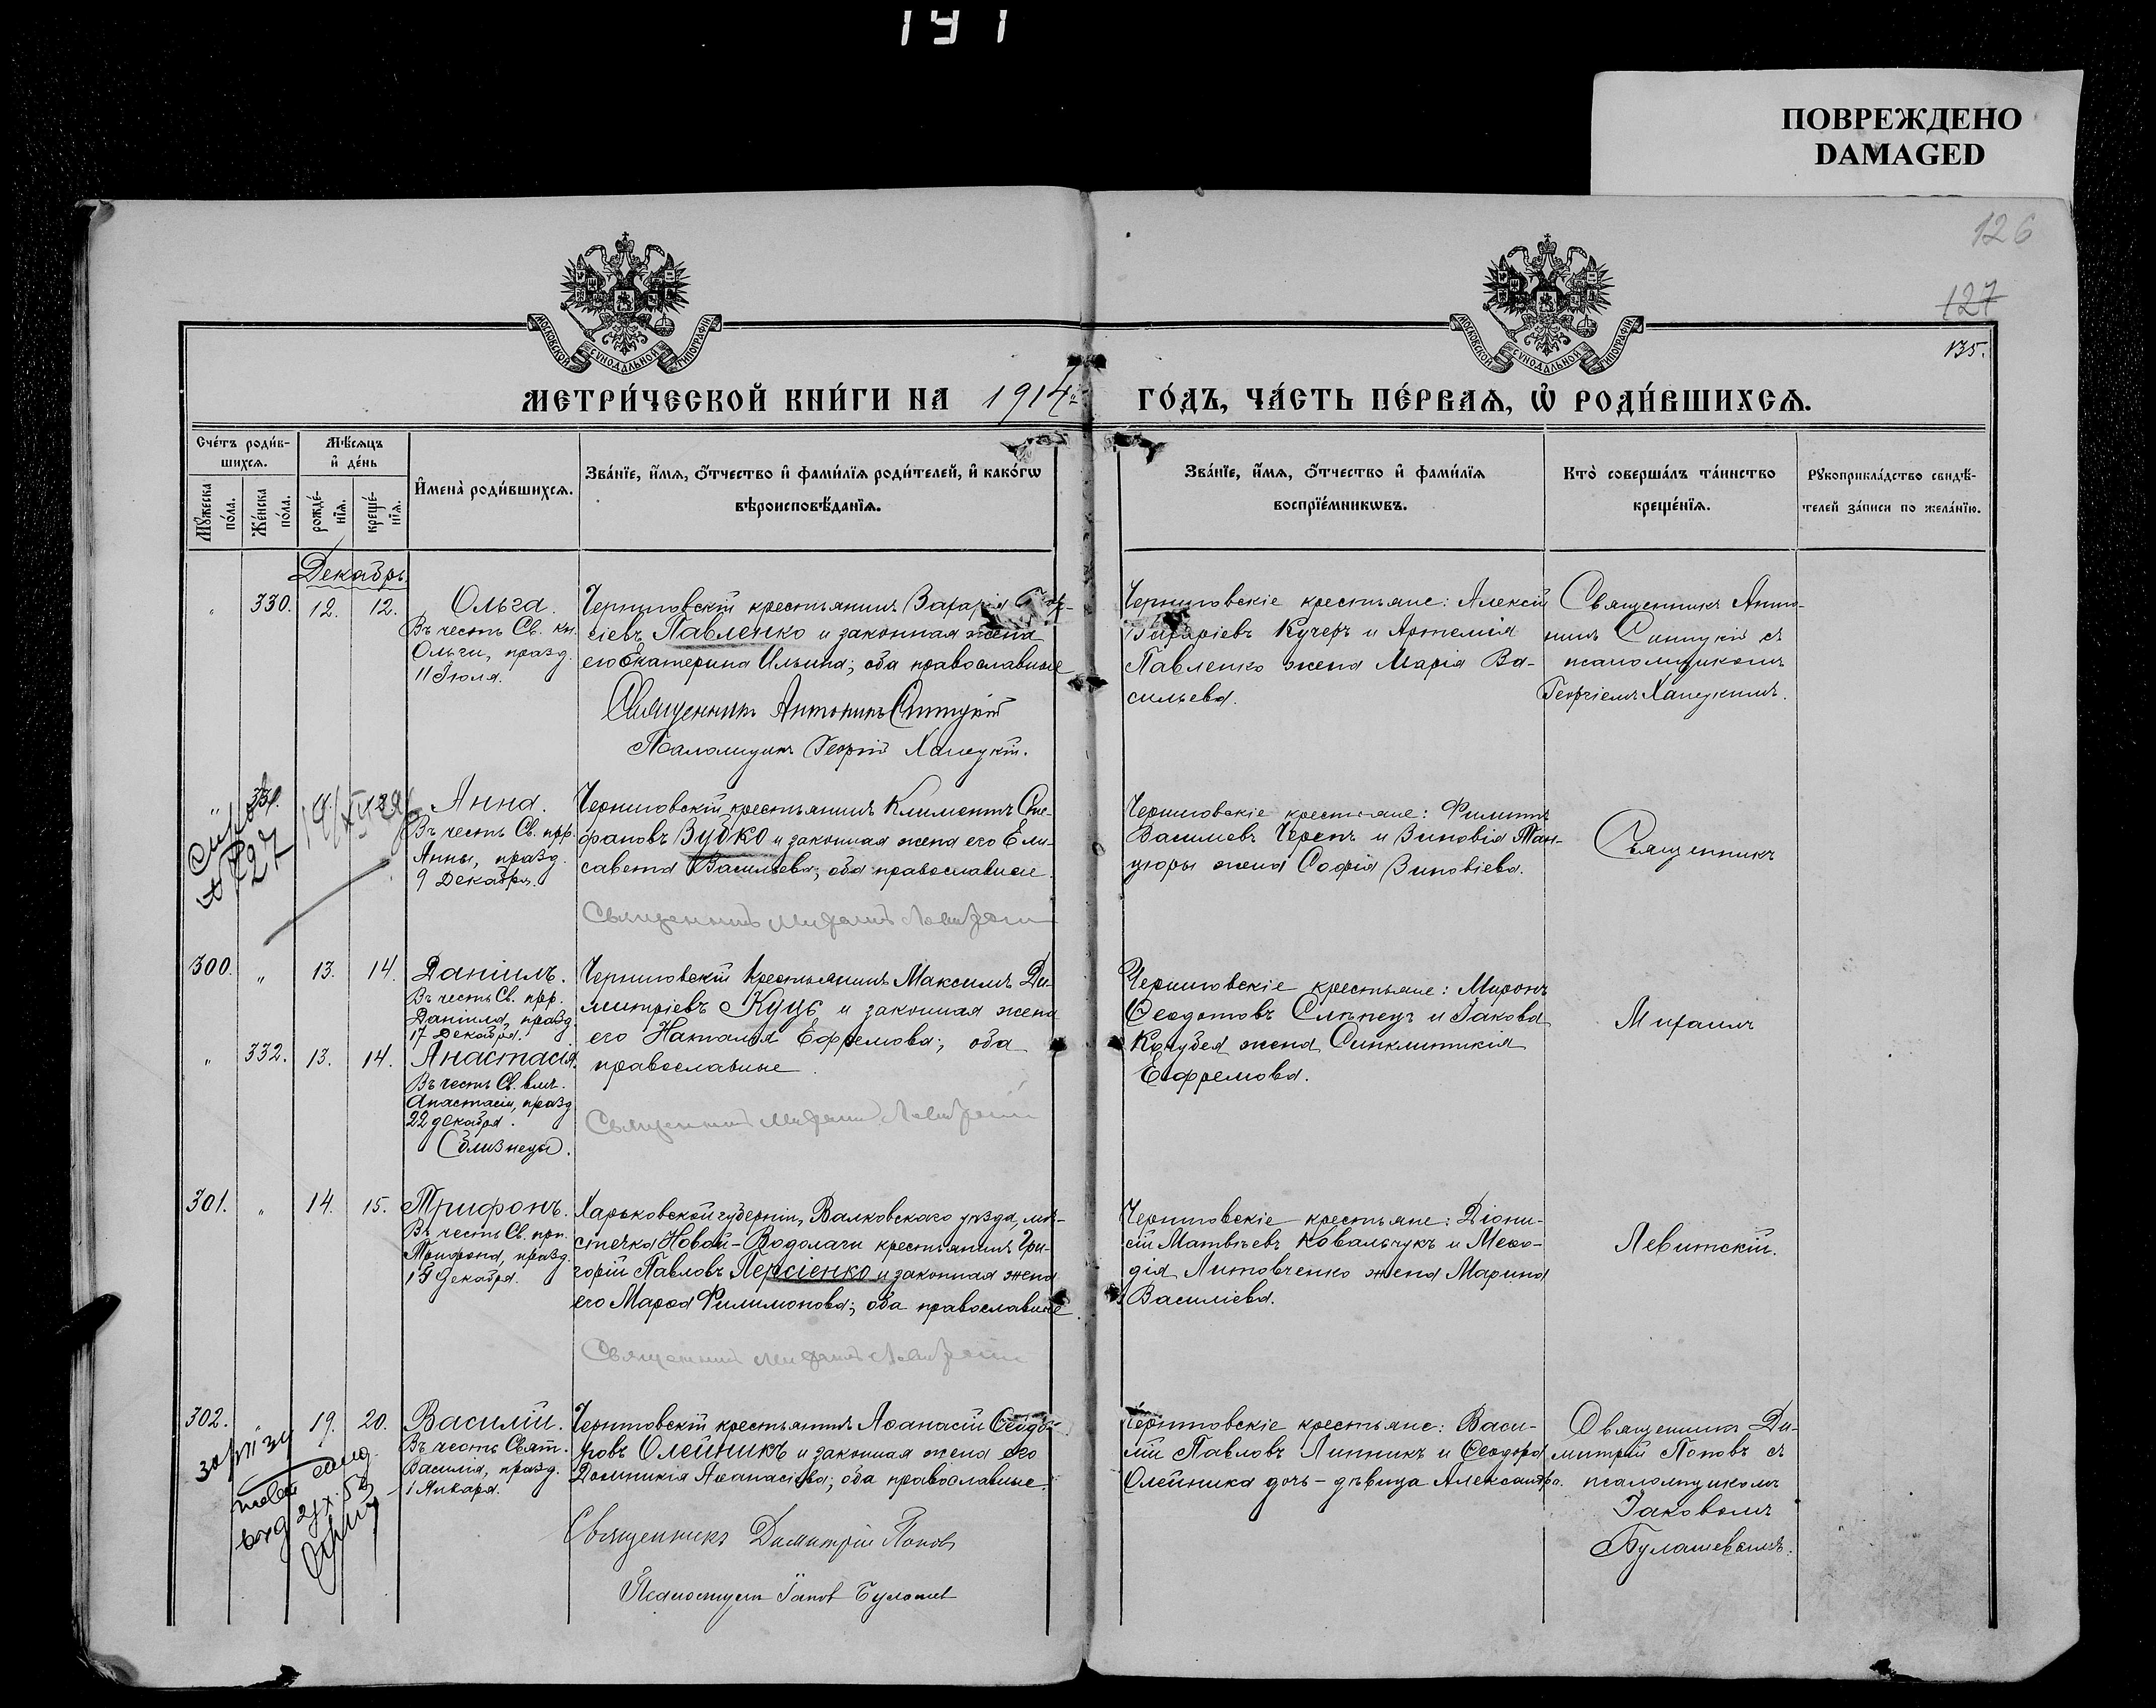 191
ПОВРЕЖДЕНО
DAMAGED
126
127
135.
МОСКОВСКОЙ СѴНОДАЛЬНОЙ ТИПОГРАФІИ
МОСКОВСКОЙ СѴНОДАЛЬНОЙ ТИПОГРАФІИ
МЕТРИ́ЧЕСКОЙ КНИ́ГИ НА 1914й ГО́ДЪ, ЧА́СТЬ ПЕ́РВАѦ, Ѽ РОДИ́ВШИХСѦ.
Сче́тъ роди́в-
шихсѧ.
Мꙋ́жеска
по́ла.
Же́нска
по́ла.
Мѣ́сѧцъ
и҆ де́нь
рожде́-
нїѧ.
креще́-
нїѧ.
И҆мена̀ роди́вшихсѧ.
Зва́нїе, и҆́мѧ, ѻ҆́тчество и҆ фами́лїѧ роди́телей, и҆ како́гѡ
вѣроисповѣ́данїѧ.
Зва́нїе, и҆́мѧ, ѻ҆́тчество и҆ фами́лїѧ
воспрїе́мникѡвъ.
Кто̀ соверша́лъ та́инство
креще́нїѧ.
Рꙋкоприкла́дство свидѣ́-
телей за́писи по жела́нїю.
Декабрь
" 330. 12. 12.
Ольга.
Въ честь Св. кн.
Ольги, празд.
11 Іюля.
Черниговскій крестьянинъ Захарія
сіевъ Павленко и законная жена
его Екатерина Ильина; оба православные
Священникъ Антонинъ Синицкій
Псаломщикъ Георгій Хапецкій.
Черниговскіе крестьяне: Алексій
Захаріевъ Кучеръ и Артемія
Павленко жена Марія Ва-
сильева.
Священникъ Анто-
нинъ Синицкій съ
псаломщикомъ
Георгіемъ Хапецкимъ.
" 331.
Анна.
Въ честь Св. прр.
Анны, празд.
9 Декабря.
Черниговскій крестьянинъ Климентъ Сте-
фановъ Зубко и законная жена его Ели-
савета Васильева; оба православные.
Священникъ Михаилъ Левитскій
Черниговскіе крестьяне: Филиппъ
Василіевъ Черепъ и Зиновія Тан-
цюры жена Софія Зиновіева.
Священникъ
300. " 13. 14.
Даніилъ.
Въ честь Св. прр.
Даніила, празд.
17 Декабря.
Черниговскій крестьянинъ Максимъ Ди-
митріевъ Куцъ и законная жена
его Наталія Ефремова; оба
православные.
Священникъ Михаилъ Левитскій
Черниговскіе крестьяне: Миронъ
Ѳеодотовъ Слѣпецъ и Іакова
Кочубея жена Синклитикія
Ефремова.
Михаилъ
" 332. 13. 14.
Анастасія.
Въ честь Св. влм.
Анастасіи, празд.
22 декабря.
(близнецы).
301. " 14. 15.
Трифонъ.
Въ честь Св. прп.
Трифона, празд.
19 Декабря.
Харьковской губерніи, Валковскаго уѣзда, мѣ-
стечка Новой-Водолаги крестьянинъ Гри-
горій Павловъ и законная жена
его Марѳа Филимонова; оба православные
Священникъ Михаилъ Левитскій
Черниговскіе крестьяне: Діони-
сій Матвѣевъ Ковальчукъ и Меѳо-
дія Литовченко жена Марина
Василіева.
Левитскій.
302. " 19. 20.
Василій.
Въ честь Свят.
Василія, празд.
1 Января.
Черниговскій крестьянинъ Аѳанасій Ѳеодо-
ровъ Олейникъ и законная жена его
Домникія Аѳанасіева; оба православные.
Священникъ Димитрій Поповъ
Псаломщикъ Іаковъ
Черниговскіе крестьяне: Васи-
лій Павловъ Линникъ и Ѳеодора
Олейника дочь-дѣвица Александра.
Священникъ Ди-
митрій Поповъ съ
псаломщикомъ
Іаковомъ
Булашевскимъ.